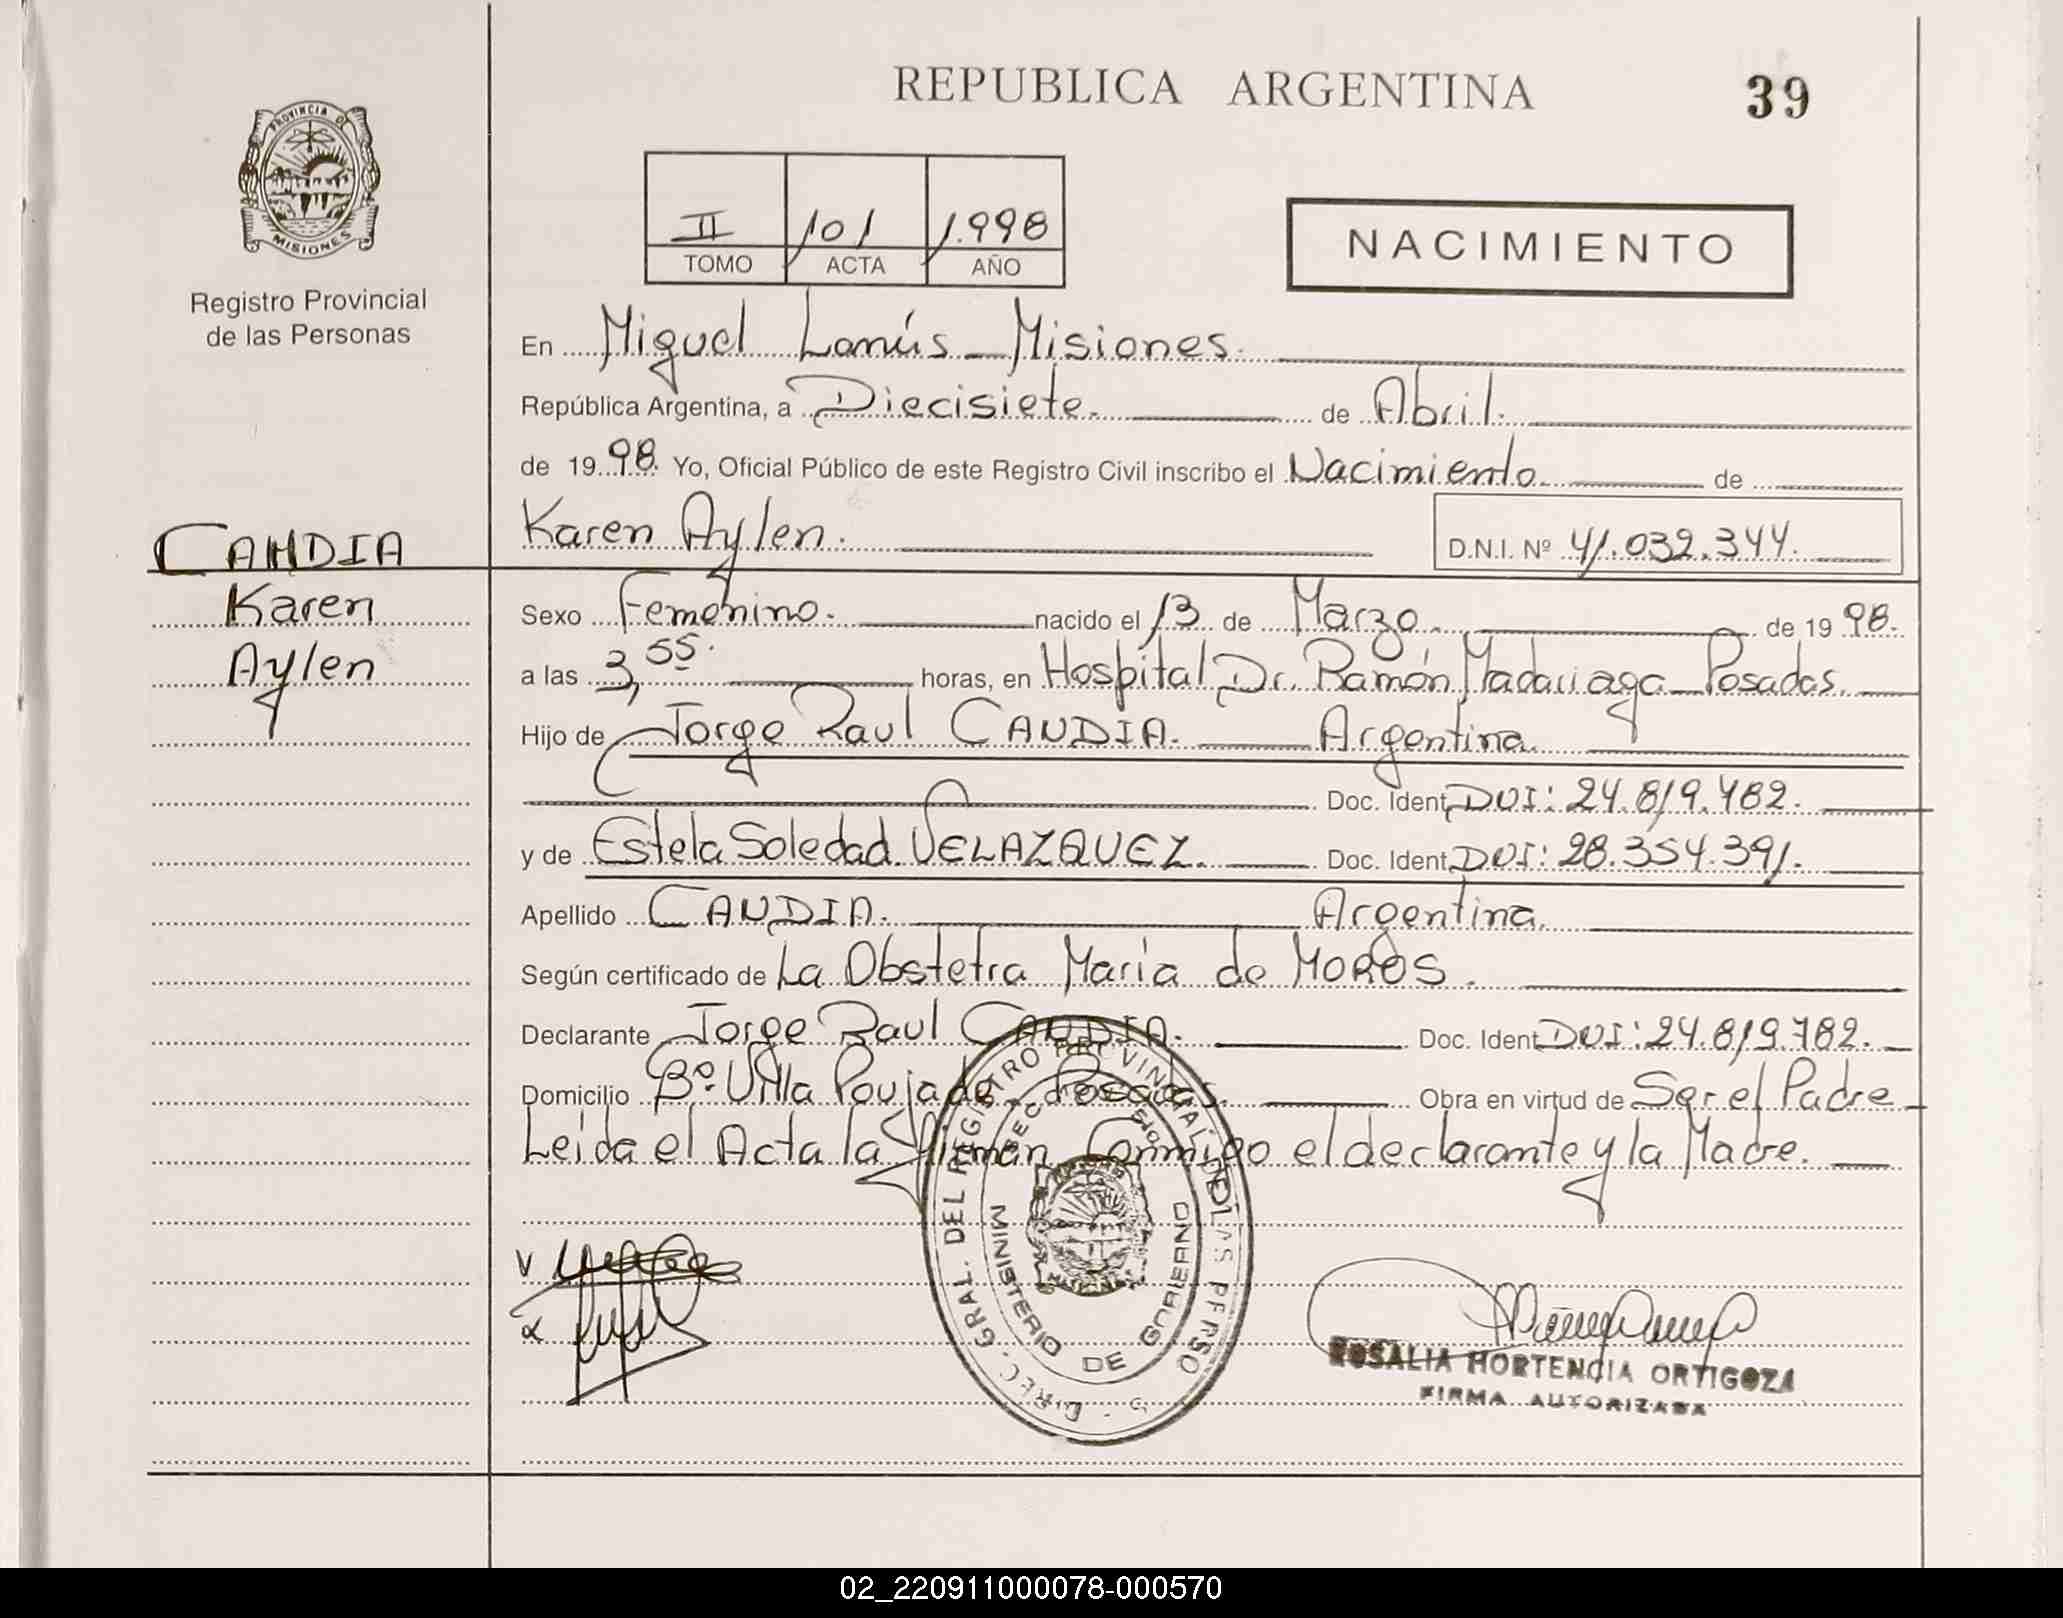 REPUBLICA ARGENTINA
39
PROVINCIA DE
MISIONES
Registro Provincial
de las Personas
II 101 1.998
TOMO ACTA AÑO
NACIMIENTO
En Miguel Lanús - Misiones.
República Argentina, a Diecisiete. de Abril.
de 19 98. Yo, Oficial Público de este Registro Civil inscribo el Nacimiento de
Karen Aylen. D.N.I. Nº 41.032.344.
CANDIA
Karen
Aylen
Sexo Femenino. nacido el 13 de Marzo. de 19 98.
a las 3,55. horas, en Hospital Dr. Ramón Madariaga - Posadas.
Hijo de Jorge Raul CANDIA. Argentina.
Doc. Ident. DNI: 24.819.782.
y de Estela Soledad VELAZQUEZ. Doc. Ident. DNI: 28.354.391.
Apellido CANDIA. Argentina.
Según certificado de La Obstetra Maria de MOROS.
Declarante Jorge Raul CANDIA. Doc. Ident. DNI: 24.819.782.
Domicilio Bº. Villa Poujade - Posadas. Obra en virtud de Ser el Padre
Leida el Acta la Firman Conmigo el declarante y la Madre.
DIREC. GRAL. DEL REGISTRO PROVINCIAL DE LAS PERSO
MINISTERIO DE GOBIERNO
ROSALIA HORTENCIA ORTIGOZA
FIRMA AUTORIZADA
02_220911000078-000570